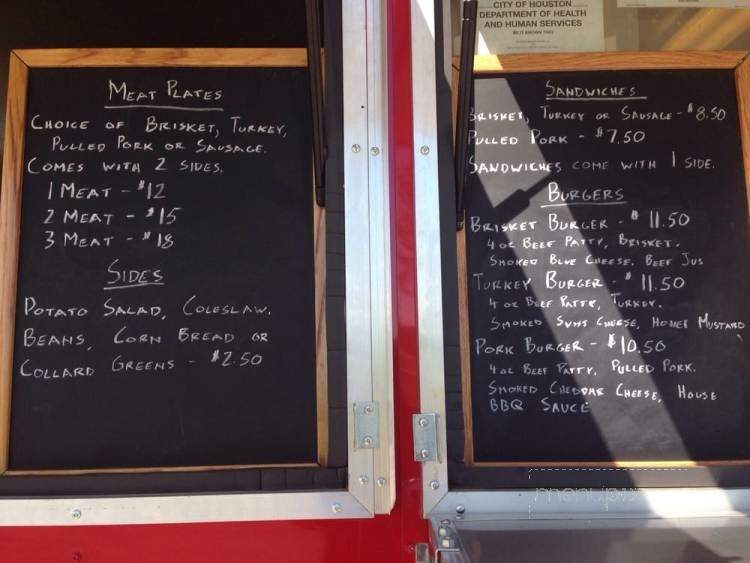 MEAT PLATES
CHOICE OF BRISKET, TURKEY,
PULLED PORK OR SAUSAGE.
COMES WITH 2 SIDES.
1 MEAT - $12
2 MEAT - $15
3 MEAT - $18
SIDES
POTATO SALAD, COLESLAW,
BEANS, CORN BREAD OR
COLLARD GREENS - $2.50
CITY OF HOUSTON
DEPARTMENT OF HEALTH
AND HUMAN SERVICES
BE IT KNOWN THAT
SANDWICHES
BRISKET, TURKEY OR SAUSAGE - $8.50
PULLED PORK - $7.50
SANDWICHES COME WITH 1 SIDE.
BURGERS
BRISKET BURGER - $11.50
4 OZ BEEF PATTY, BRISKET.
SMOKED BLUE CHEESE, BEEF JUS
TURKEY BURGER - $11.50
4 OZ BEEF PATTY, TURKEY.
SMOKED SWISS CHEESE, HONEY MUSTARD
PORK BURGER - $10.50
4 OZ BEEF PATTY, PULLED PORK.
SMOKED CHEDDAR CHEESE, HOUSE
BBQ SAUCE